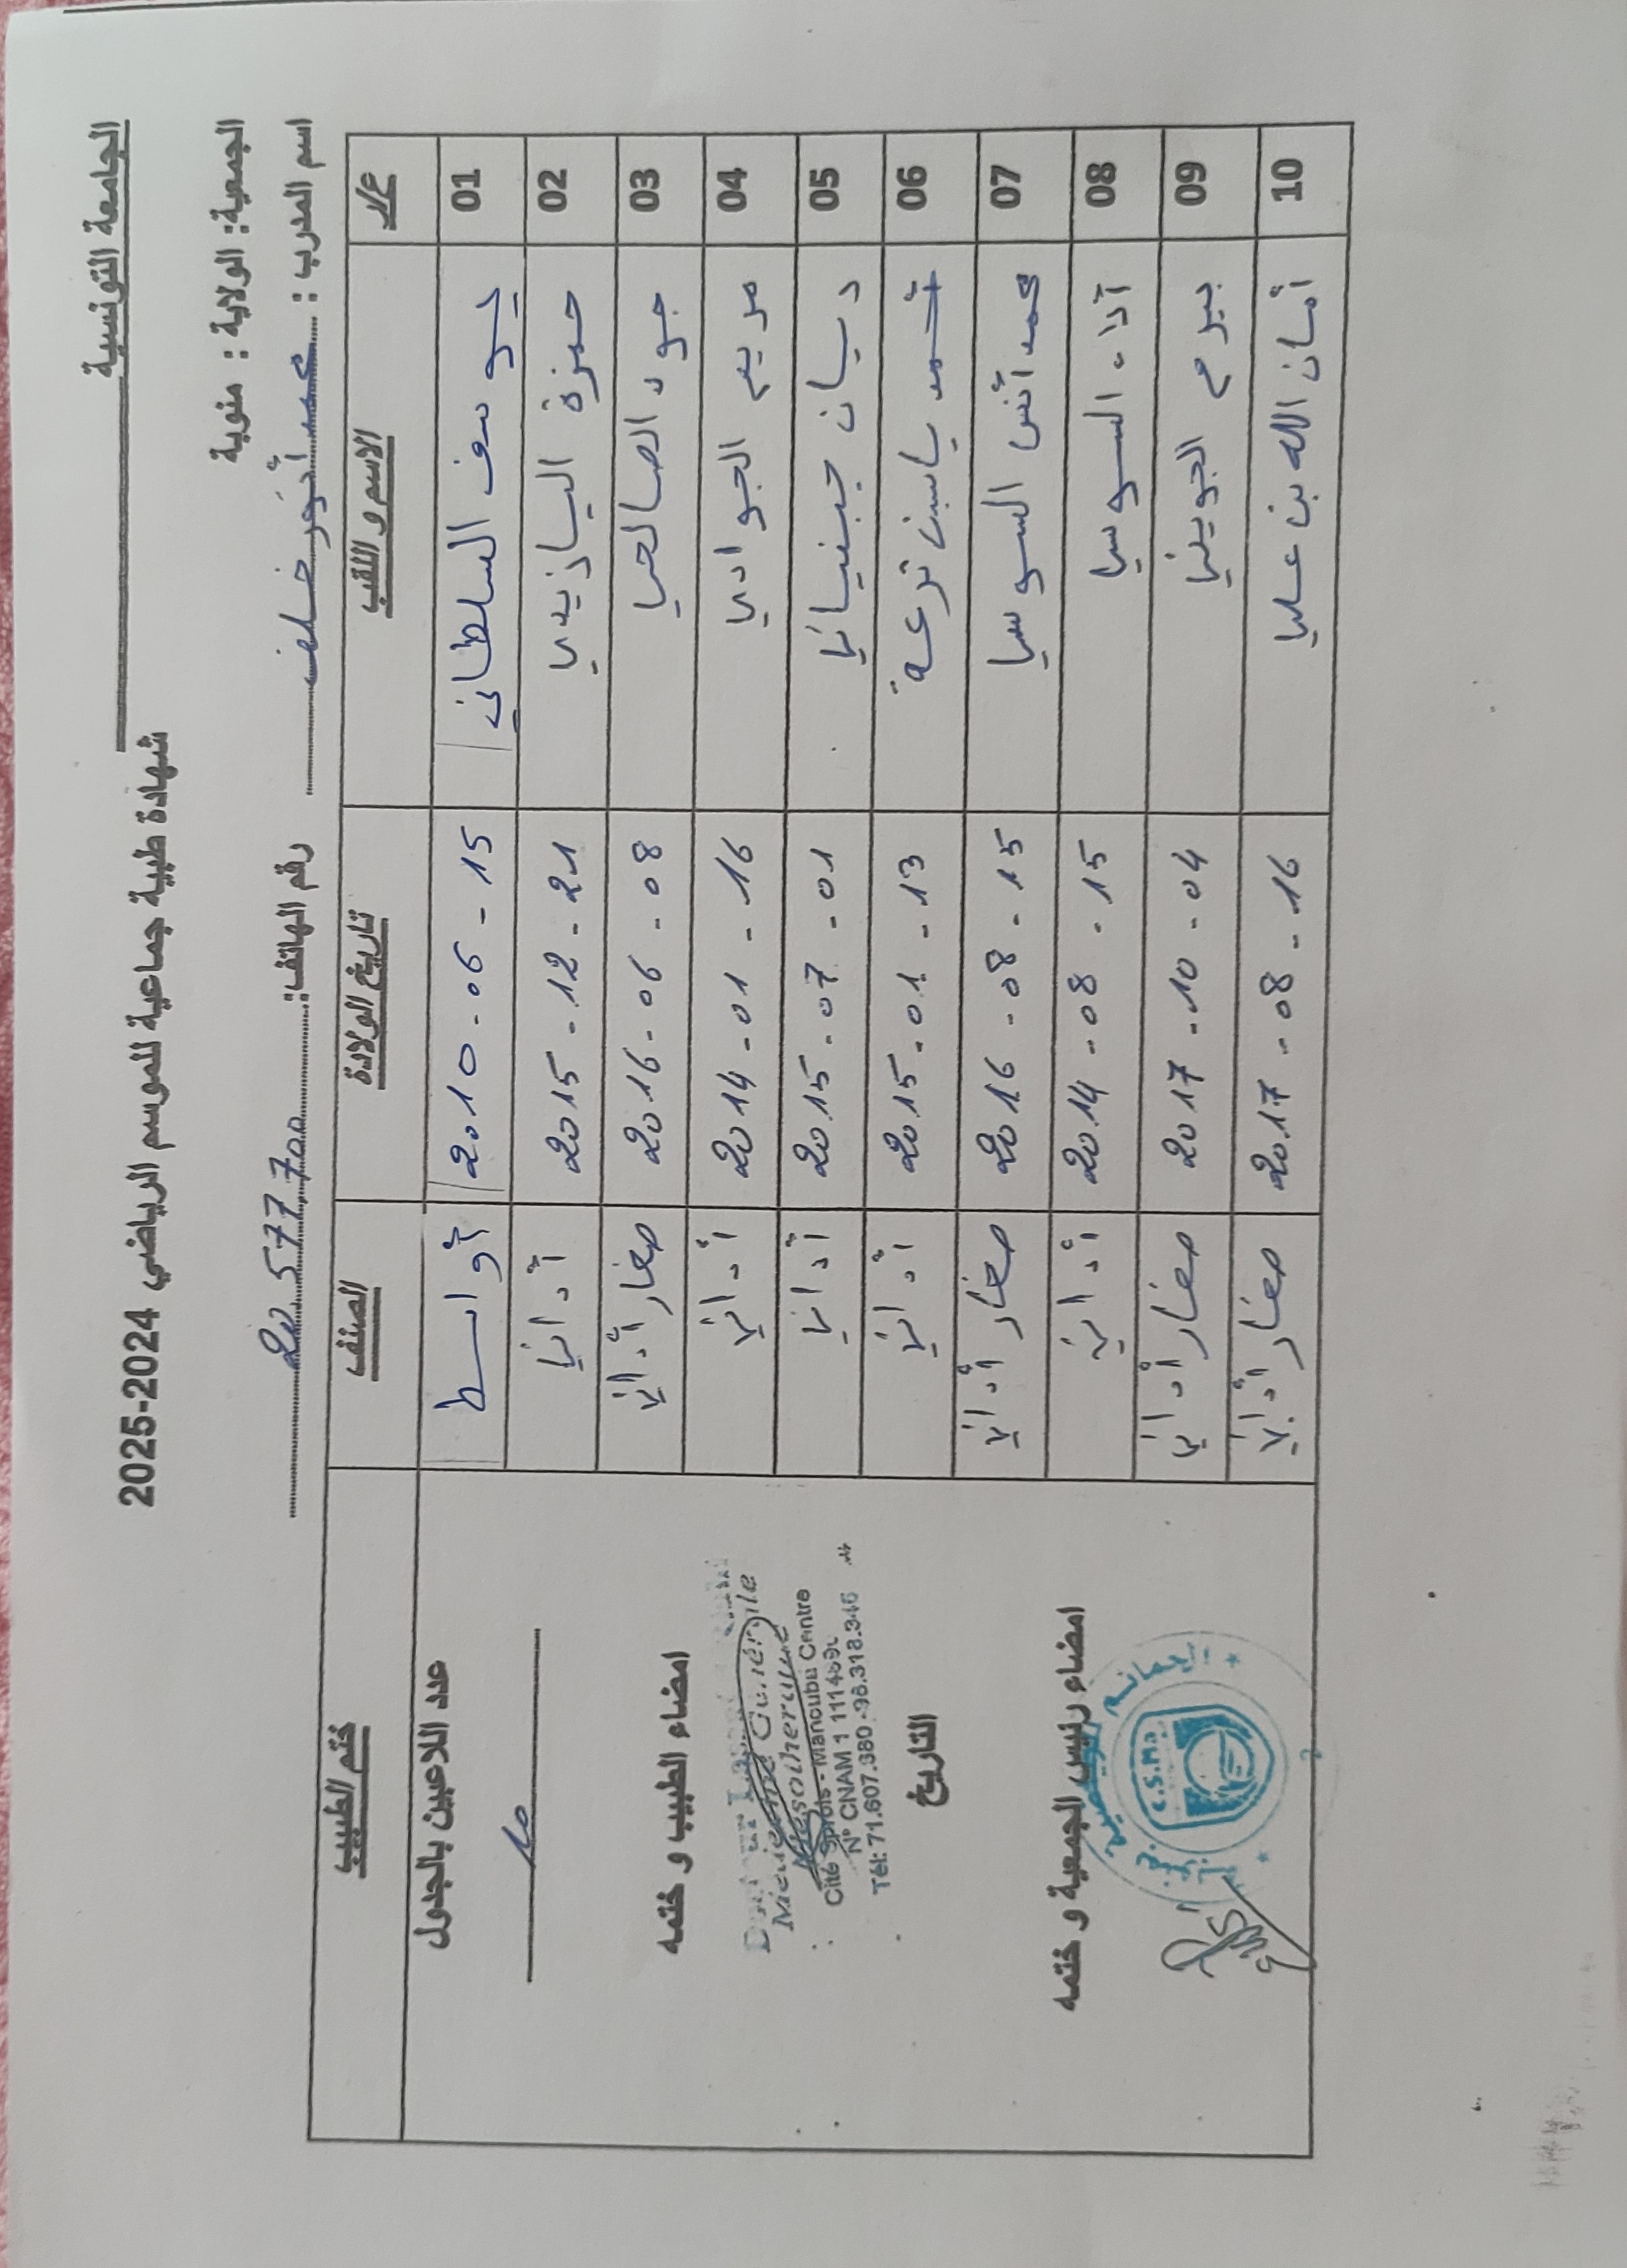 الجامعة التونسية
شهادة طبية جماعية للموسم الرياضي 2024-2025
الجمعية: الولاية : منوبة
اسم المدرب : محمد أنور خلف رقم الهاتف: 20 577 700
ع/ر الاسم و اللقب تاريخ الولادة الصنف ختم الطبيب
01 يوسف السلطاني 2010-06-15 أواسط
02 حمزة اليازيدي 2015-12-21 أداني
03 جود الصالحي 2016-06-08 صغار أداني
04 مريم الجوادي 2014-01-16 أداني
05 ديان جبنياني 2015-07-01 أداني
06 محمد ياسين ترعة 2015-01-13 أداني
07 محمد أنس السوسي 2016-08-15 صغار أداني
08 آلاء السوسي 2014-08-15 أداني
09 بيرم الجويني 2017-10-04 صغار أداني
10 أمان الله بن علي 2017-08-16 صغار أداني
عدد اللاعبين بالجدول
10
امضاء الطبيب و ختمه
Médecine Générale
Mésothérapie
Cité Sprols - Manouba Centre
N° CNAM 1 11148
Tél: 71.607.380 -98.318.346
التاريخ
امضاء رئيس الجمعية و ختمه
C.S.M.